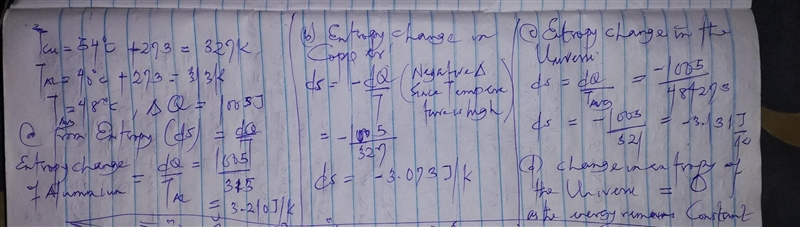 T_Cu = 54°C + 273 = 327K
T_Al = 40°C + 273 = 313K
T_Avg = 48°C, ΔQ = 1005J
(a) From Entropy (ds) = dQ/T
Entropy change of Aluminium = dQ/T_Al = 1005/315
= 3.210J/K
(b) Entropy change in
ds = -dQ/T (Negative Δ
since Tempera
ture is high)
= -1005/327
ds = -3.073J/K
(c) Entropy change in the
Univers
ds = dQ/T_Avg = -1005/48+273
ds = -1005/321 = -3.131J/K
(d) Change in entropy of
the Univers = 0
as the energy remains Constant